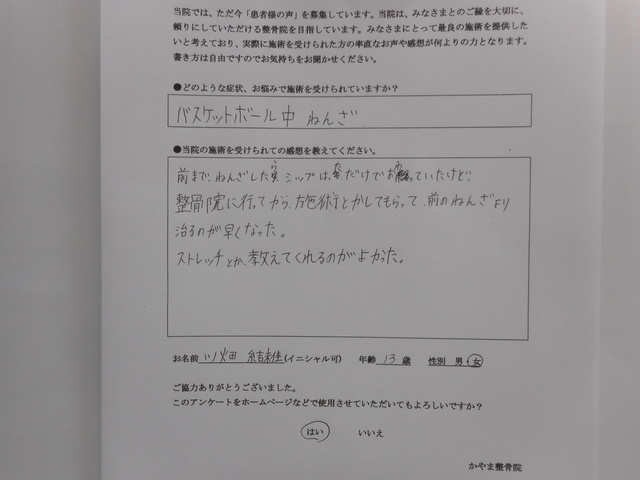 当院では、ただ今「患者様の声」を募集しています。当院は、みなさまとのご縁を大切に、
頼りにしていただける整骨院を目指しています。みなさまにとって最良の施術を提供した
いと考えており、実際に施術を受けられた方の率直なお声や感想が何よりの力となります。
書き方は自由ですのでお気持ちをお聞かせください。
●どのような症状、お悩みで施術を受けられていますか？
バスケットボール中 ねんざ
●当院の施術を受けられての感想を教えてください。
前まで、ねんざしたら、シップは、だけでお っていたけど、
整骨院に行ってから、施術とかしてもらって、前のねんざより
治るのが早くなった。
ストレッチとか、教えてくれるのがよかった。
お名前 川畑 結 (イニシャル可) 年齢 13 歳 性別 男・女
ご協力ありがとうございました。
このアンケートをホームページなどで使用させていただいてもよろしいですか？
はい いいえ
かやま整骨院